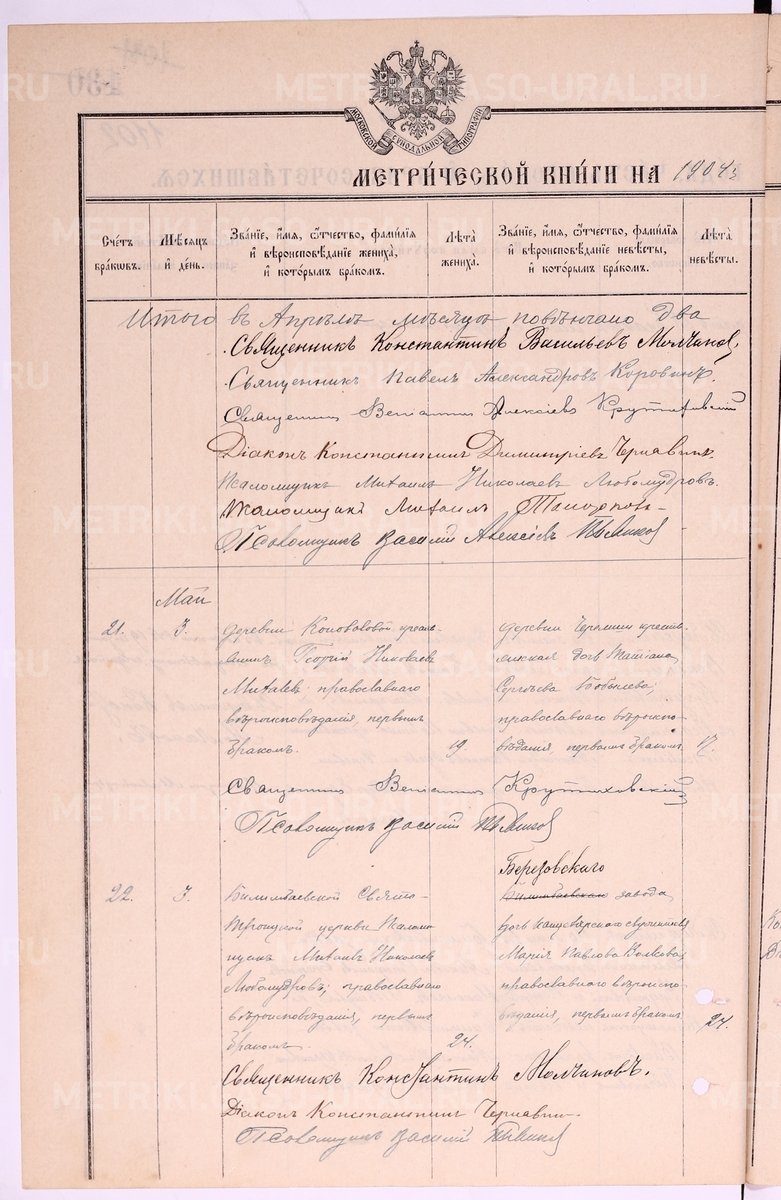 МОСКОВСКОЙ СѴНОДАЛЬНОЙ ТИПОГРАФІИ
МЕТРИ́ЧЕСКОЙ КНИ́ГИ НА 1904 г.
Сче́тъ бра́кωвъ.
Мѣ́сѧцъ и҆ де́нь.
Зва́нїе, и҆́мѧ, ѻ҆́тчество, фамѝлїѧ и҆ вѣроисповѣ́данїе жениха̀, и҆ кото́рымъ бра́комъ.
Лѣ́та жениха̀.
Зва́нїе, и҆́мѧ, ѻ҆́тчество, фамѝлїѧ и҆ вѣроисповѣ́данїе невѣ́сты, и҆ кото́рымъ бра́комъ.
Лѣ́та невѣ́сты.
Итого въ Апрѣлѣ мѣсяцѣ повѣнчано два
Священникъ Константинъ Васильевъ Молчановъ.
Священникъ Павелъ Александровъ Коровинъ.
Священникъ Веніаминъ Алексіевъ Крутиховскій
Діаконъ Константинъ Димитріевъ Чернавинъ
Псаломщикъ Михаилъ Николаевъ Любомудровъ.
Псаломщикъ Михаилъ
Псаломщикъ Василій Алексіевъ
Май
21.
3.
Деревни Коноваловой кресть-
янинъ Георгій Николаевъ
Михалевъ; православнаго
вѣроисповѣданія, первымъ
бракомъ.
19.
Деревни Черемши кресть-
янская дочь Татіана
Сергѣева Бобылева;
православнаго вѣроиспо-
вѣданія, первымъ бракомъ
17.
Священникъ Веніаминъ Крутиховскій
Псаломщикъ Василій
22.
3.
Билимбаевской Свято-
Троицкой церкви Псалом-
щикъ Михаилъ Николаевъ
Любомудровъ; православнаго
вѣроисповѣданія, первымъ
бракомъ
24.
Березовскаго
Билимбаевскаго завода
дочь
Марія Павлова Волкова
православнаго вѣроиспо-
вѣданія, первымъ бракомъ
24.
Священникъ Константинъ Молчановъ.
Діаконъ Константинъ Чернавин.
Псаломщикъ Василій